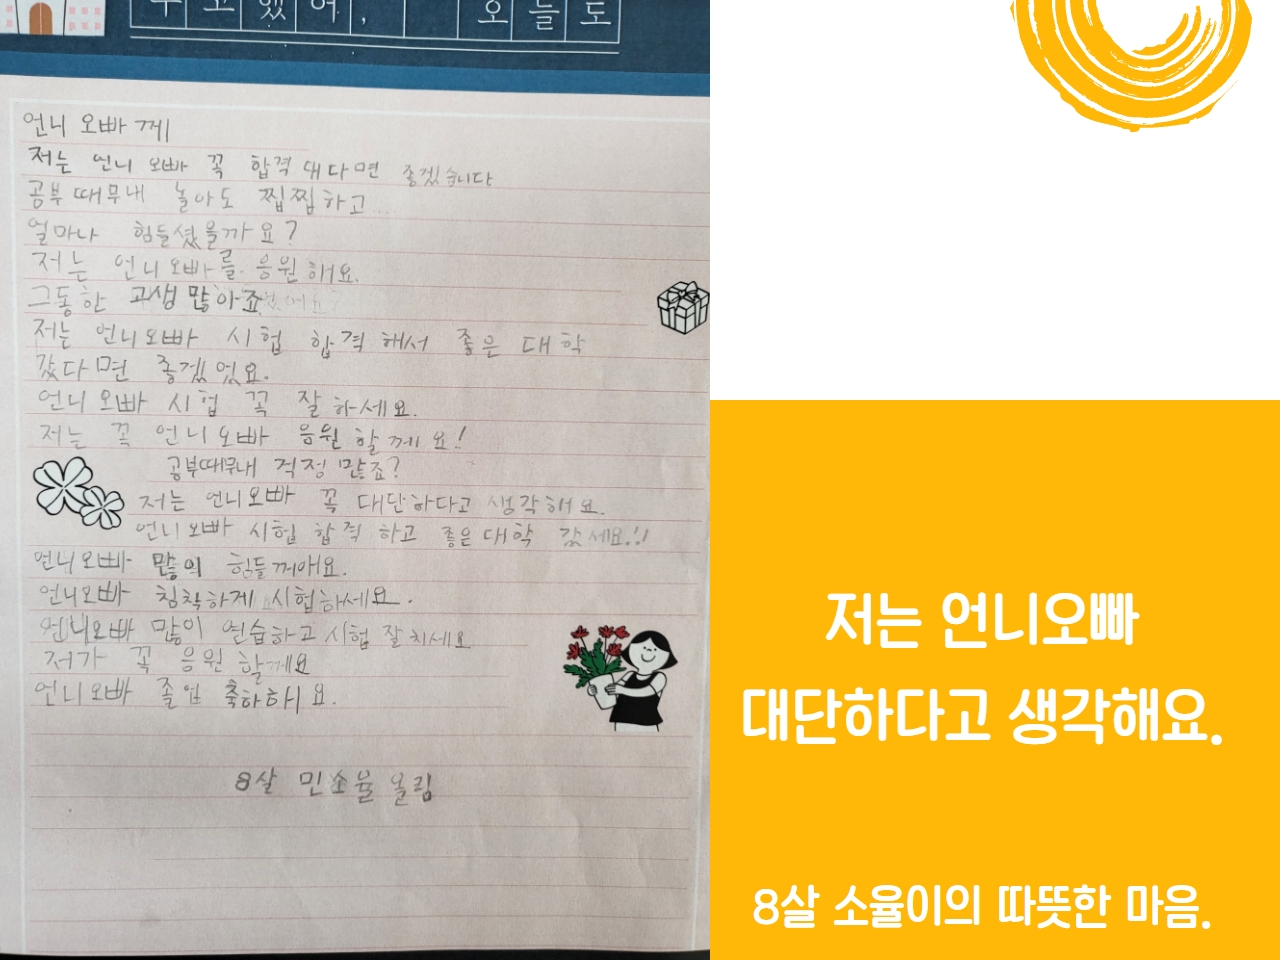 수고했어, 오늘도
언니 오빠 께
저는 언니 오빠 꼭 합격 대다면 좋겠습니다
공부 때무내 놀아도 찝찝하고....
얼마나 힘들셨을까요?
저는 언니오빠를 응원해요.
그동한 고생 많아죠
저는 언니오빠 시험 합격 해서 좋은 대학
갔다면 좋겠었요.
언니오빠 시험 꼭 잘하세요.
저는 꼭 언니오빠 응원할께요!
공부때무내 걱정 많죠?
저는 언니오빠 꼭 대단하다고 생각해요.
언니오빠 시험 합격 하고 좋은대학 갔세요!!
언니오빠 많의 힘들꺼애요.
언니오빠 침착하게 시험하세요.
언니오빠 많이 연습하고 시험 잘 치세요
저가 꼭 응원 할께요
언니오빠 졸업 축하하요.
8살 민소율 올림
저는 언니오빠
대단하다고 생각해요.
8살 소율이의 따뜻한 마음.